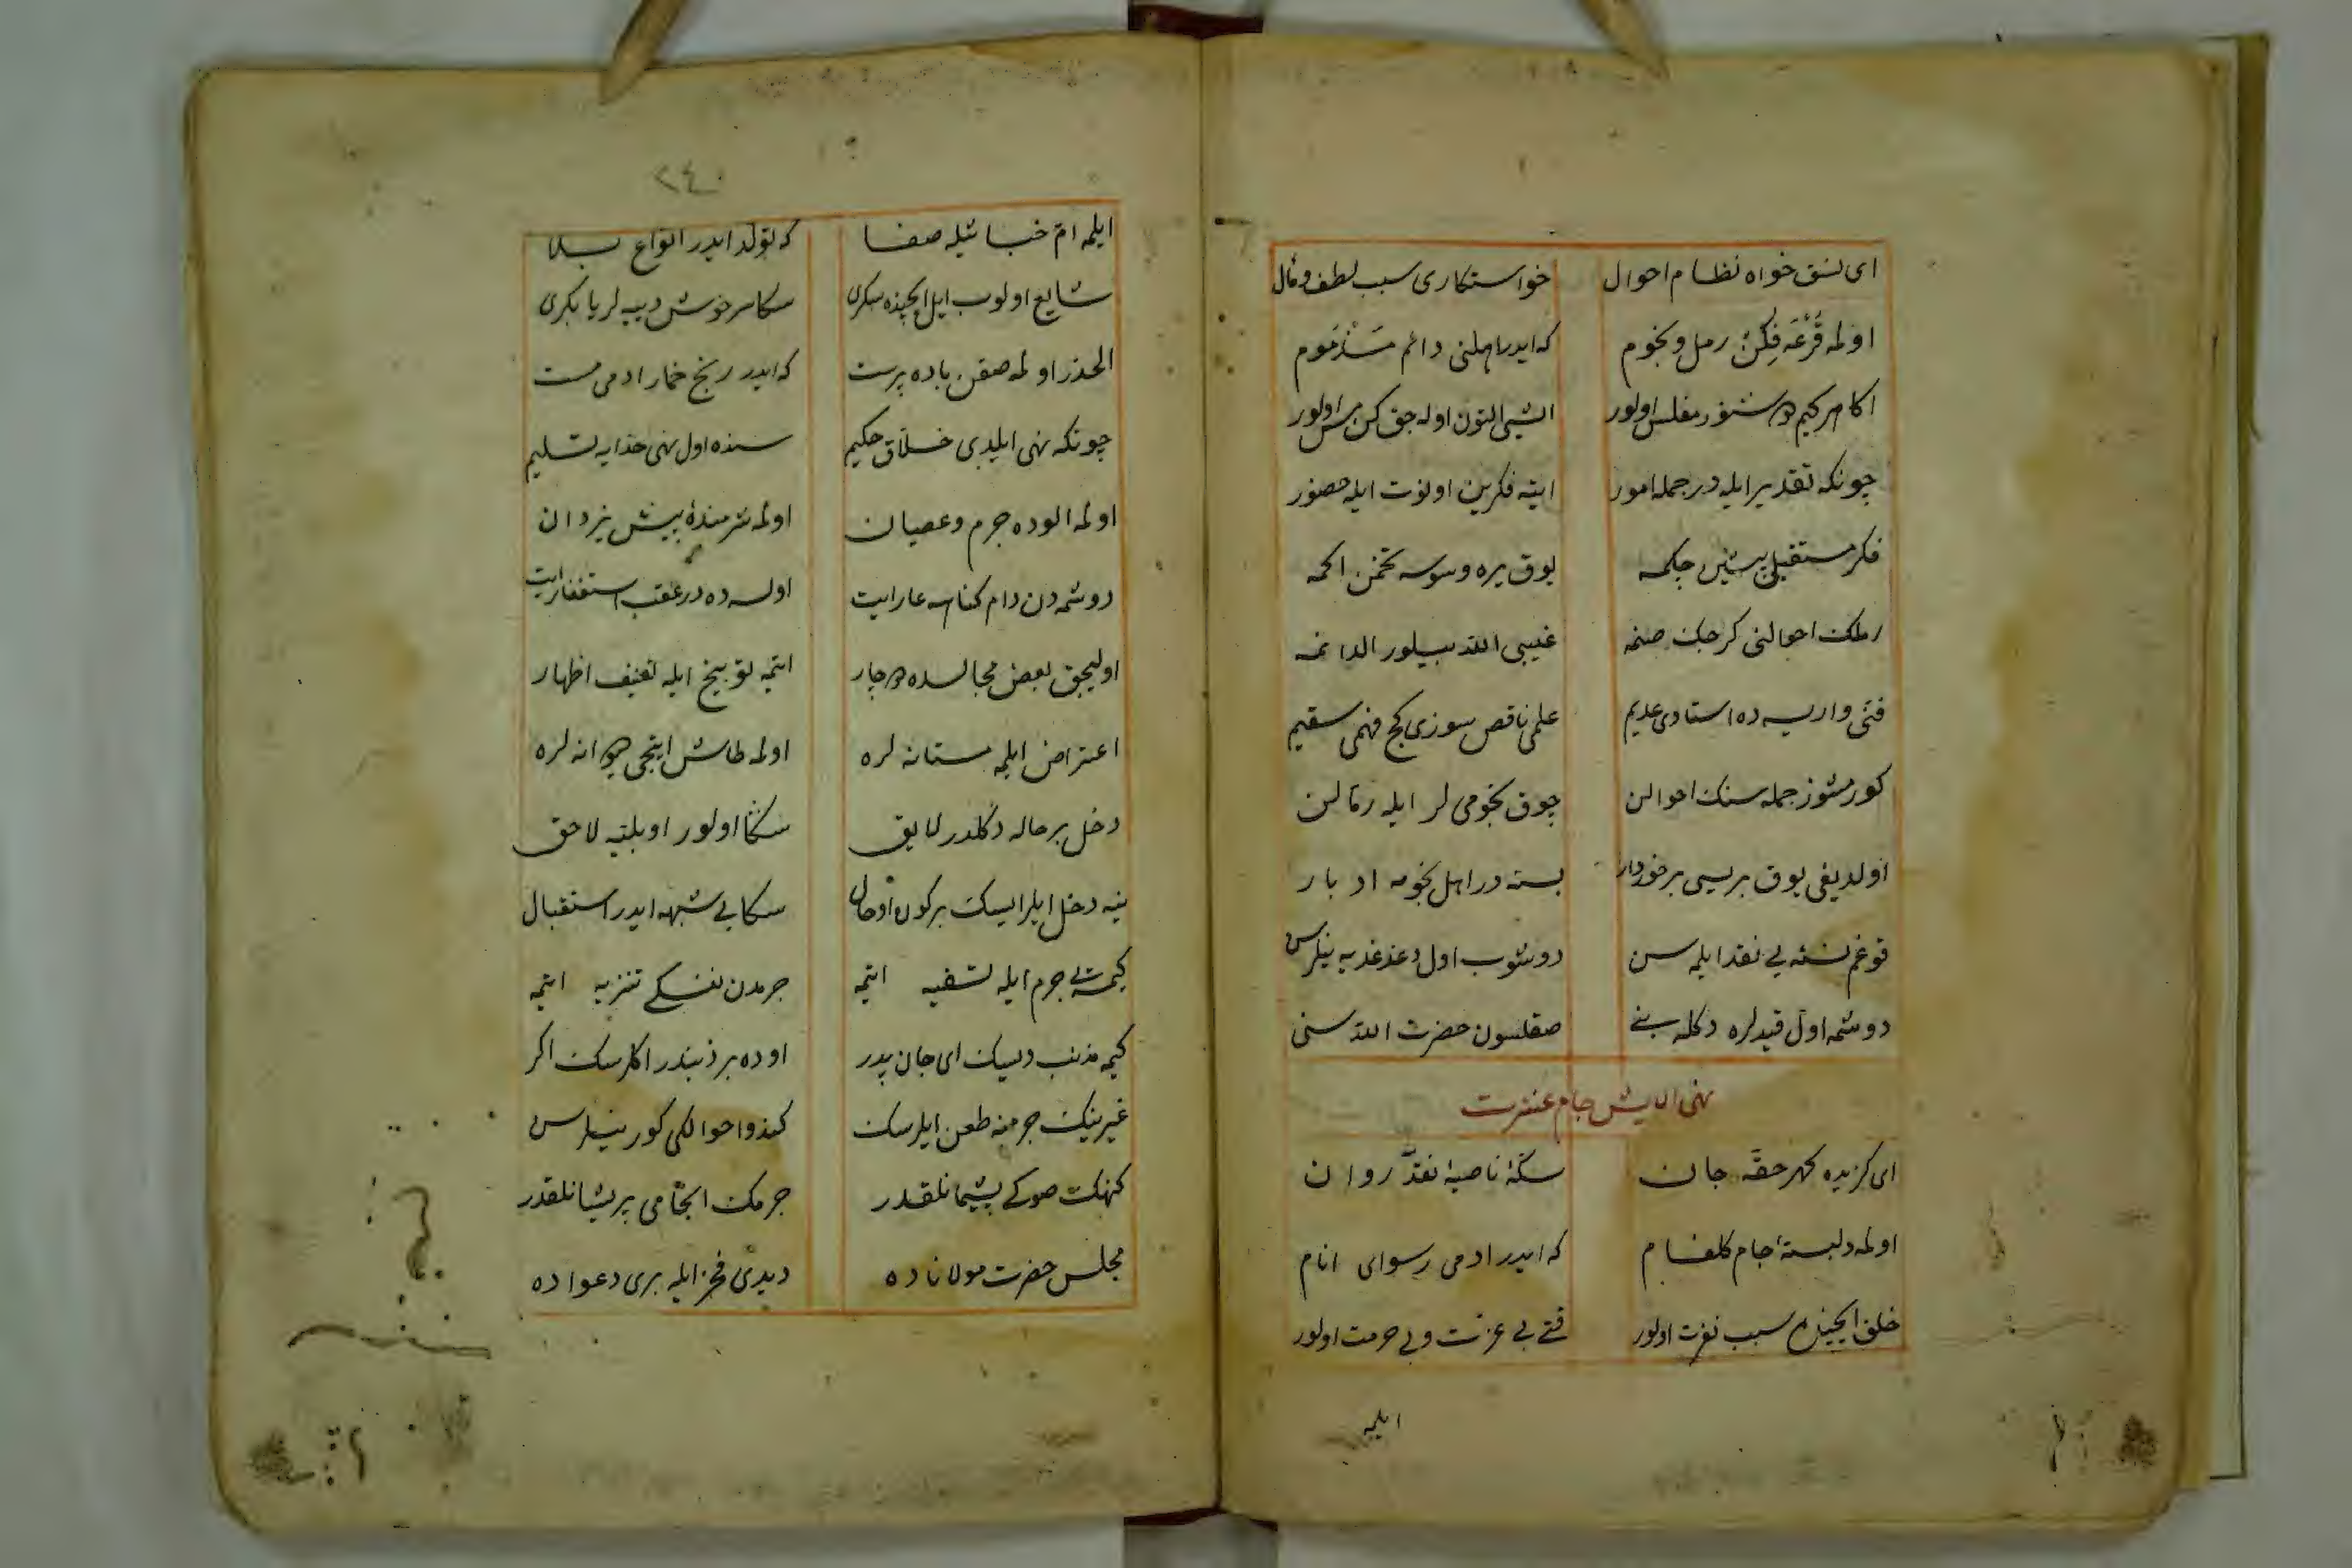 ای نسق خواه نظام احوال خواستکاری سبب لطف ومآل
اولمه قرعه فکن رمل ونجوم که ایدر اهلنی دائم مذموم
اکا هر کیم دوشنور مفلس اولور ایشی التون اوله جق کن مس اولور
چونکه تقدیر ایله در جمله امور ایته فکرین اونوت ایله حضور
فکر مستقبلی پیشین چکمه یوق یره وسوسه تخمن اکمه
رملک احوالنی کرچک صنمه غیبی الله بیلور الدانمه
فنی واریسه ده استادی عدیم علمی ناقص سوزی کج فهمی سقیم
کورمشوز جمله سنک احوالن چوق نجومی لر ایله رمالن
اولدیغی یوق بریسی برخوردار بسته در اهل نجومه ادبار
قو غم نسئه یی نقد ایله سن دوشوب اول دغدغه یه نیلرسن
دوشمه اول قیدلره دکله بنی صقلسون حضرت الله سنی
نهی الایش جام عشرت
ای کزیده کهر حقه جان سکه ناصیه نقد روان
اولمه دلبسته جام کلفام که ایدر ادمی رسوای انام
خلق ایچنده سبب نفرت اولور قتی بی عزت وبی حرمت اولور
ایلمه
٢٤٠
ایلمه ام خبائثله صفا که تولد ایدر انواع بلا
شایع اولوب ایل ایچنده سکری سکا سرخوش دییه لر یا بکری
الحذر اولمه صقن باده پرست که ایدر رنج خمار ادمی مست
چونکه نهی ایلدی خلاق حکیم سنده اول نهی خدایه تسلیم
اولمه الوده جرم وعصیان اولمه شرمنده پیش یزدان
دوشمه دن دام کناهه عار ایت اولسه ده در عقب استغفار ایت
اولیجق بعض مجالسده دوچار ایتمه توبیخ ایله تعنیف اظهار
اعتراض ایلمه مستانه لره اولمه طاش ایتجی دیوانه لره
دخل برحاله دکلدر لایق سکا اولور او بلیه لاحق
نیه دخل ایلر ایسک برکون اوحال سکا بی شبهه ایدر استقبال
کیمسه یی جرم ایله تسفیه ایتمه جرمدن نفسکی تنزیه ایتمه
کیمه مذنب دیسک ای جان پدر او ده بر ذنبدر اکلرسک اکر
غیرینک جرمنه طعن ایلرسک کندو احوالکی کور نیلرسن
کنهک صوکی پشیمانلقدر جرمک انجامی پریشانلقدر
مجلس حضرت مولاناده دیدی فخر ایله بری دعواده